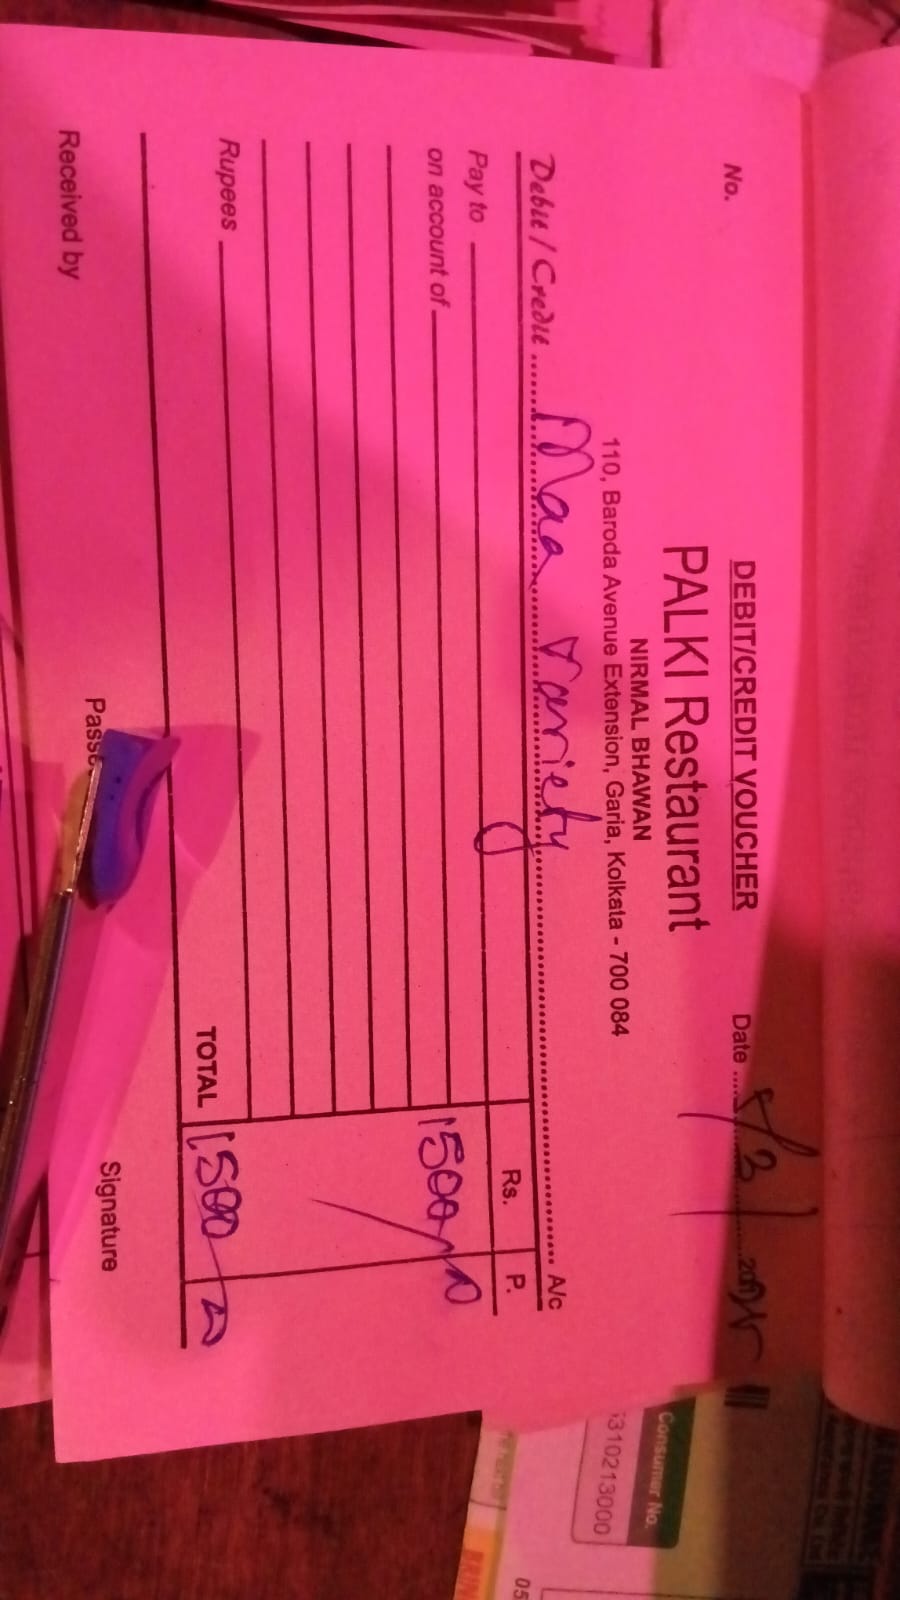 DEBIT/CREDIT VOUCHER
No.
Date
PALKI Restaurant
NIRMAL BHAWAN
110, Baroda Avenue Extension, Garia, Kolkata - 700 084
Debit / Credit Maa Variety A/c
Rs. P.
Pay to
on account of 1500
Rupees
TOTAL 1500
Received by
Signature
Consumer No.
310213000
05